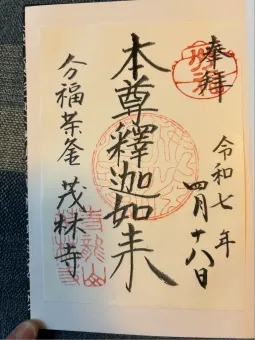 奉拝
令和七年
四月十八日
本尊釋迦如来
分福茶釜 茂林寺
青龍山